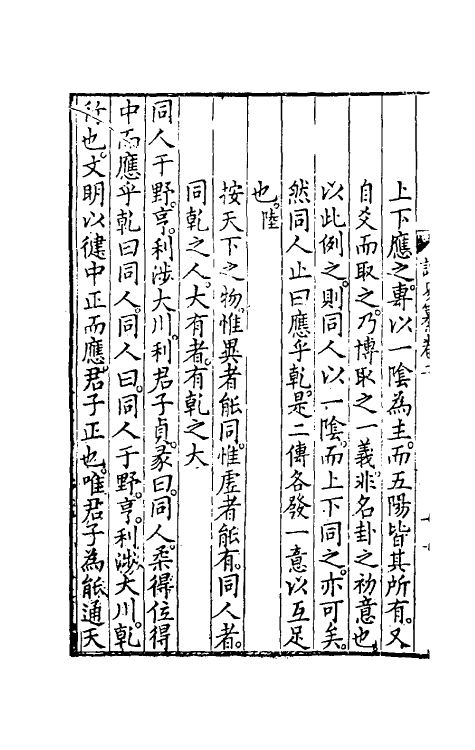 上下應之。專以一陰為主。而五陽皆其所有。又
自爻而取之。乃博取之一義。非名卦之初意也
以此例之。則同人以一陰。而上下同之。亦可矣。
然同人止曰應乎乾。是二傳各發一意以互足
也。陸
按天下之物。惟異者能同。惟虛者能有。同人者。
同乾之人。大有者。有乾之大
同人于野。亨。利涉大川。利君子貞。彖曰。同人。柔得位得
中而應乎乾曰同人。同人曰。同人于野。亨。利涉大川。乾
行也。文明以健中正而應。君子正也。唯君子為能通天